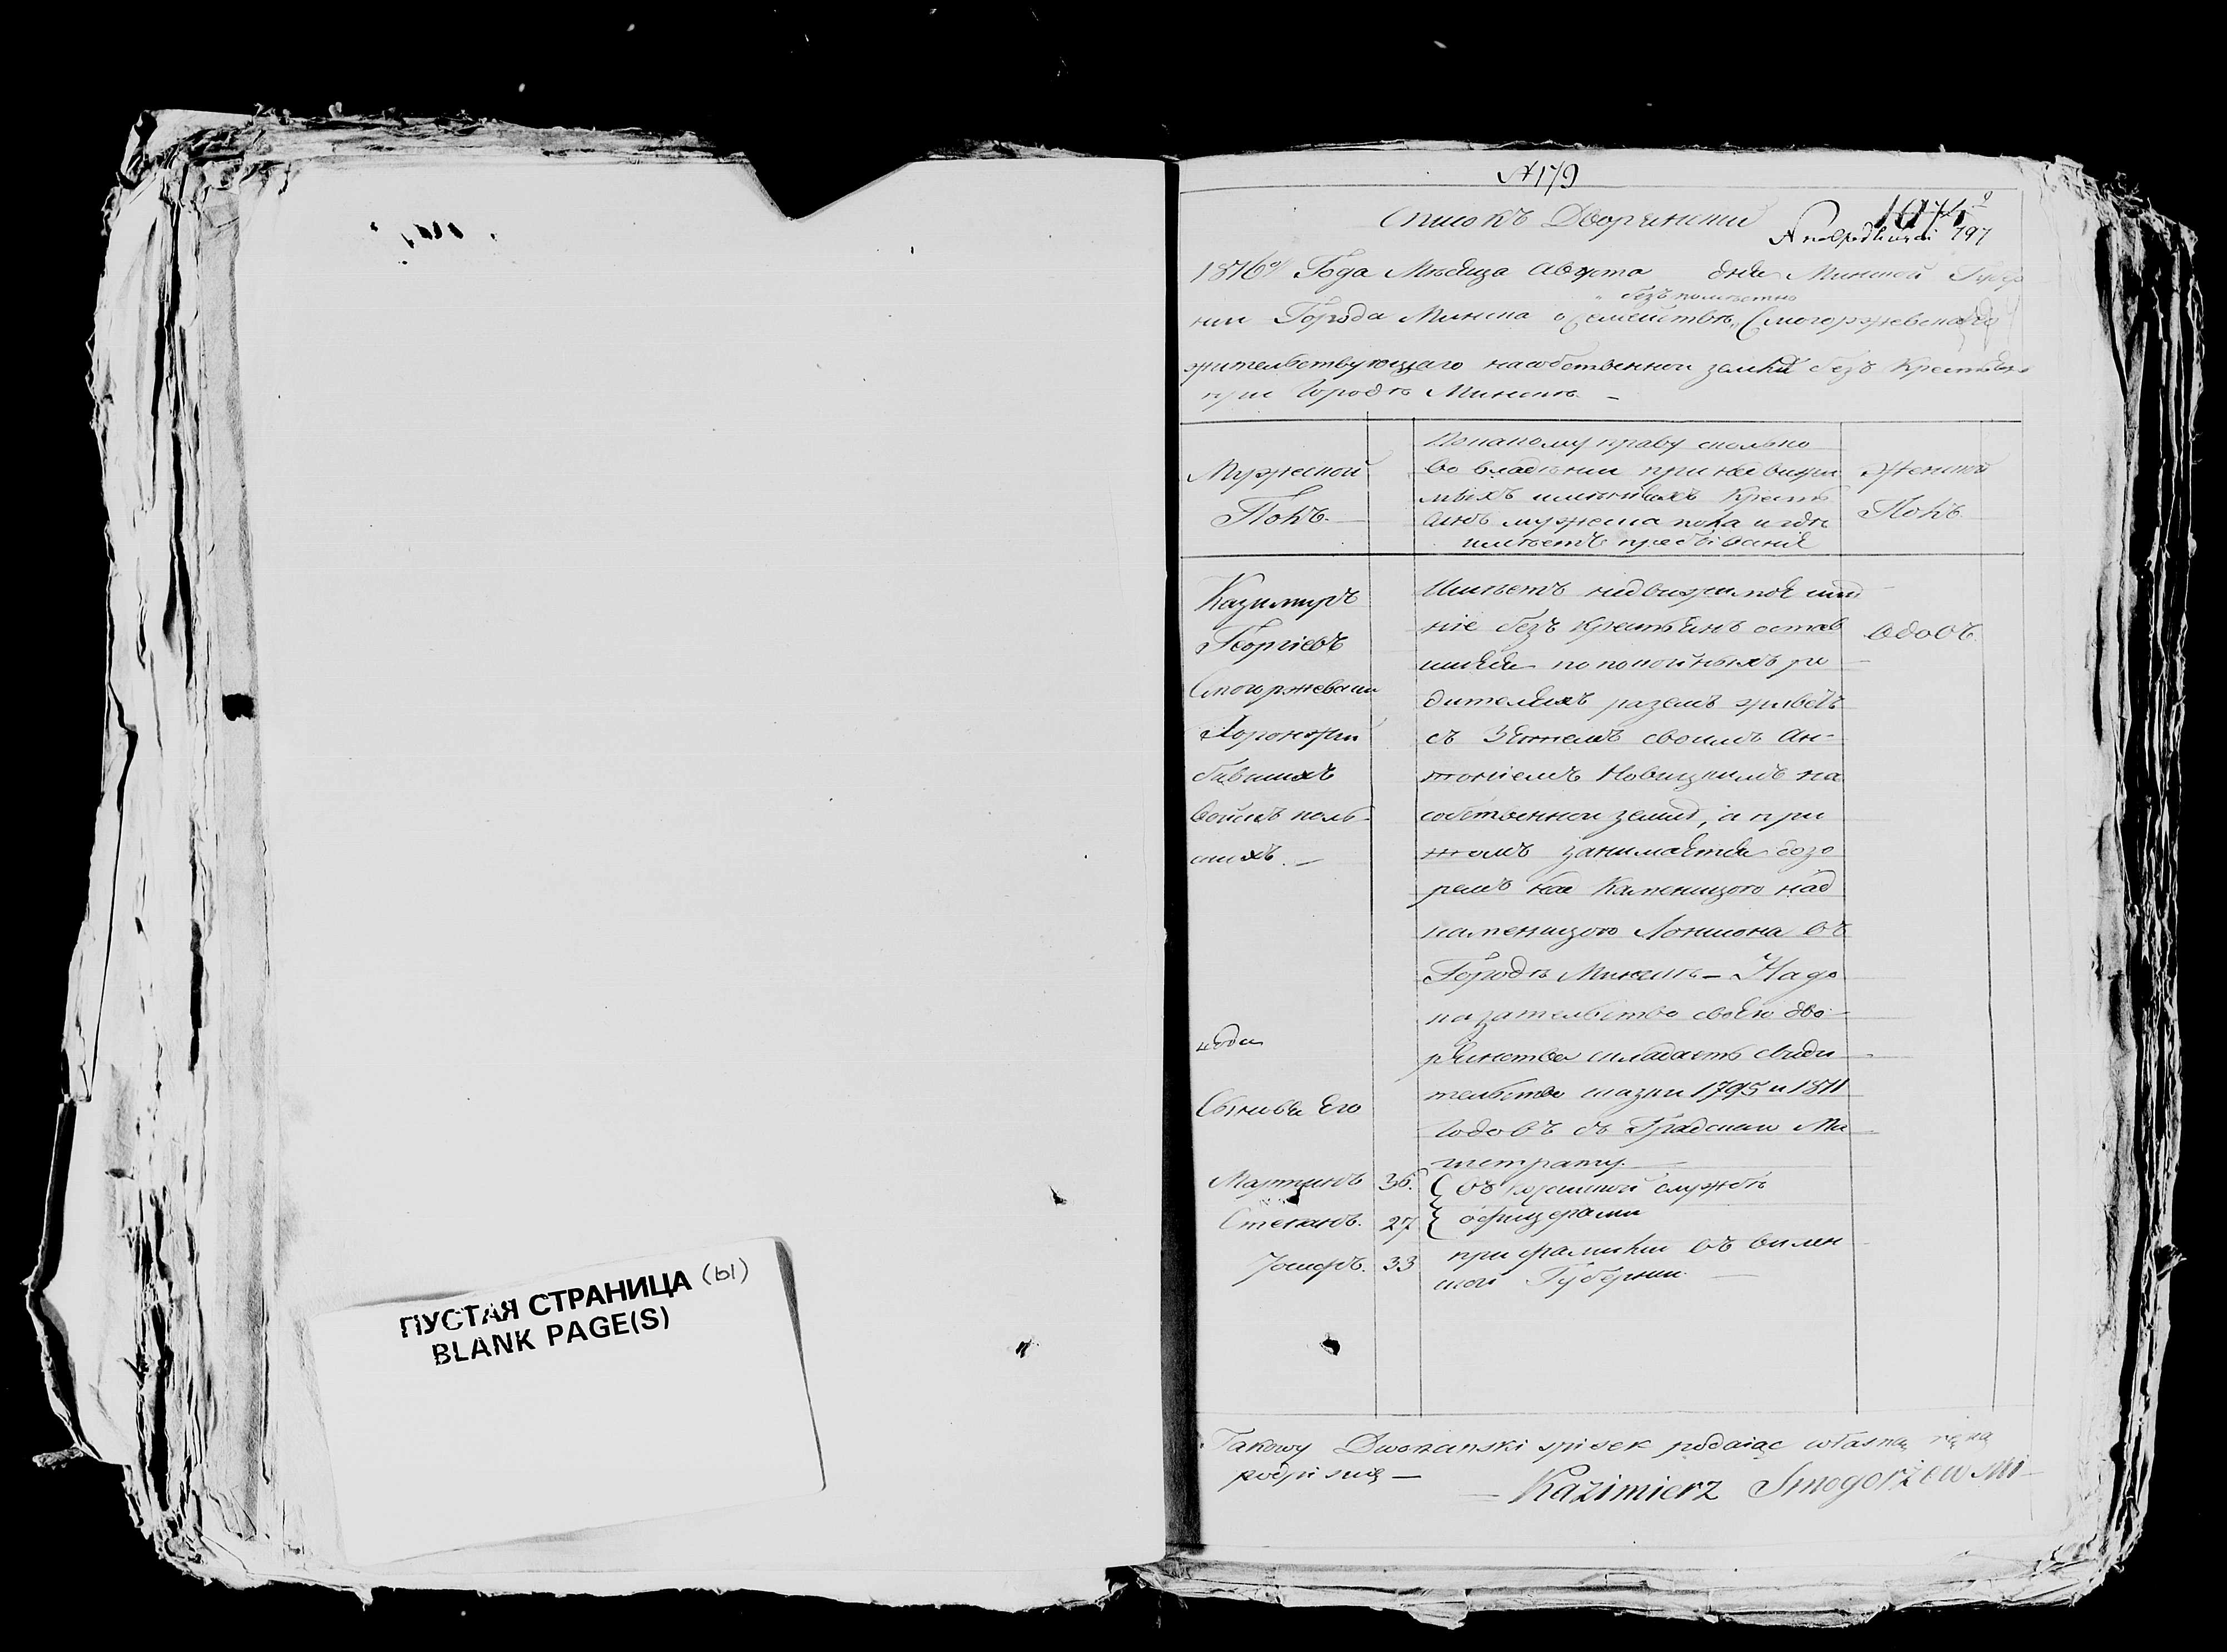 ПУСТАЯ СТРАНИЦА (ы)
BLANK PAGE(S)
№ 179
Списокъ Дворянский
797
1816го Года Месяца Августа дня Минской Губер
безпоместно
нии Города Минска о Семействе Сморжевскаго
жительствующаго на собственной земли безъ Крестьянъ
при Городе Минске. –
Мужеской
Полъ.
По какому праву сколько
во владении при не вижи
мыхъ имениахъ Крести
анъ мужеска пола и где
имеетъ пребывание
Женской
Полъ
Казимиръ
Георгіевъ
Смогоржевски
Хоронжий
бывшихъ
войскъ поль-
скихъ. –
Имеетъ недвижимое име
ние безъ крестьянъ остав
шияся по покойныхъ ро
дителяхъ раземъ живетъ
съ Зятемъ своимъ Ан-
тониемъ Новицкимъ на
собственной земли, а при
томъ занимается дозо
ремъ Каменицою над
каменицою въ
Городе Минске – На до
казательство своего дво-
рянства складаетъ свиде
тельство сказки 1795 и 1811
Годовъ съ Градскаго Ма
гистрату. –
вдовъ.
Сыновья Его
Мартинъ 36. въ службе
Степанъ. 27 офицерами
Іосифъ. 33 при фамилии въ Вилен
ской Губернии. –
Takowy Dworzanski spisek podaiąc własną ręką
podpisuię –
– Kazimierz Smogorzewski –